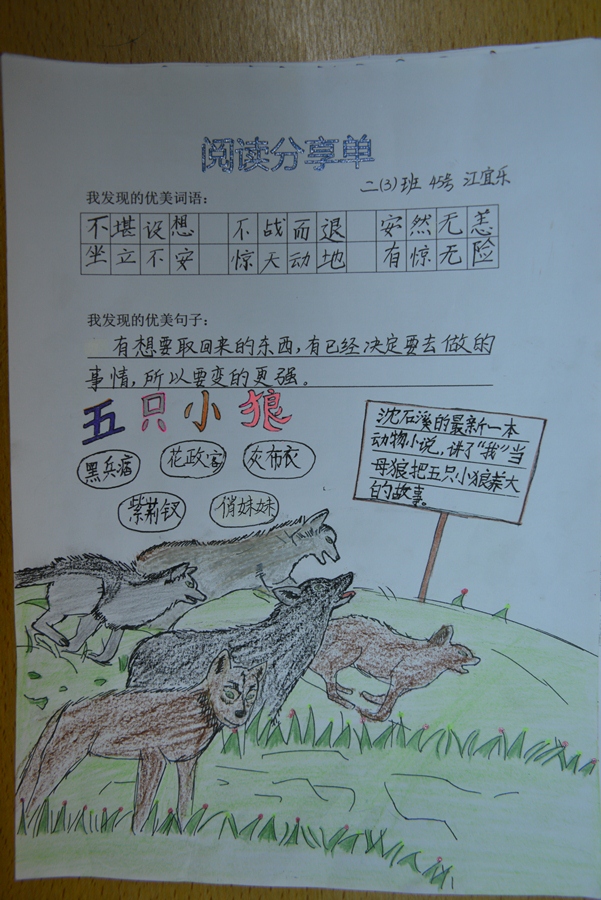 阅读分享单
二(3)班 45号 江宜乐
我发现的优美词语：
不堪设想 不战而退 安然无恙
坐立不安 惊天动地 有惊无险
我发现的优美句子：
有想要取回来的东西，有已经决定要去做的
事情，所以要变的更强。
五只小狼
沈石溪的最新一本
动物小说，讲了“我”当
母狼把五只小狼养大
的故事。
黑兵痞 花政客 灰布衣
紫荆钗 俏妹妹